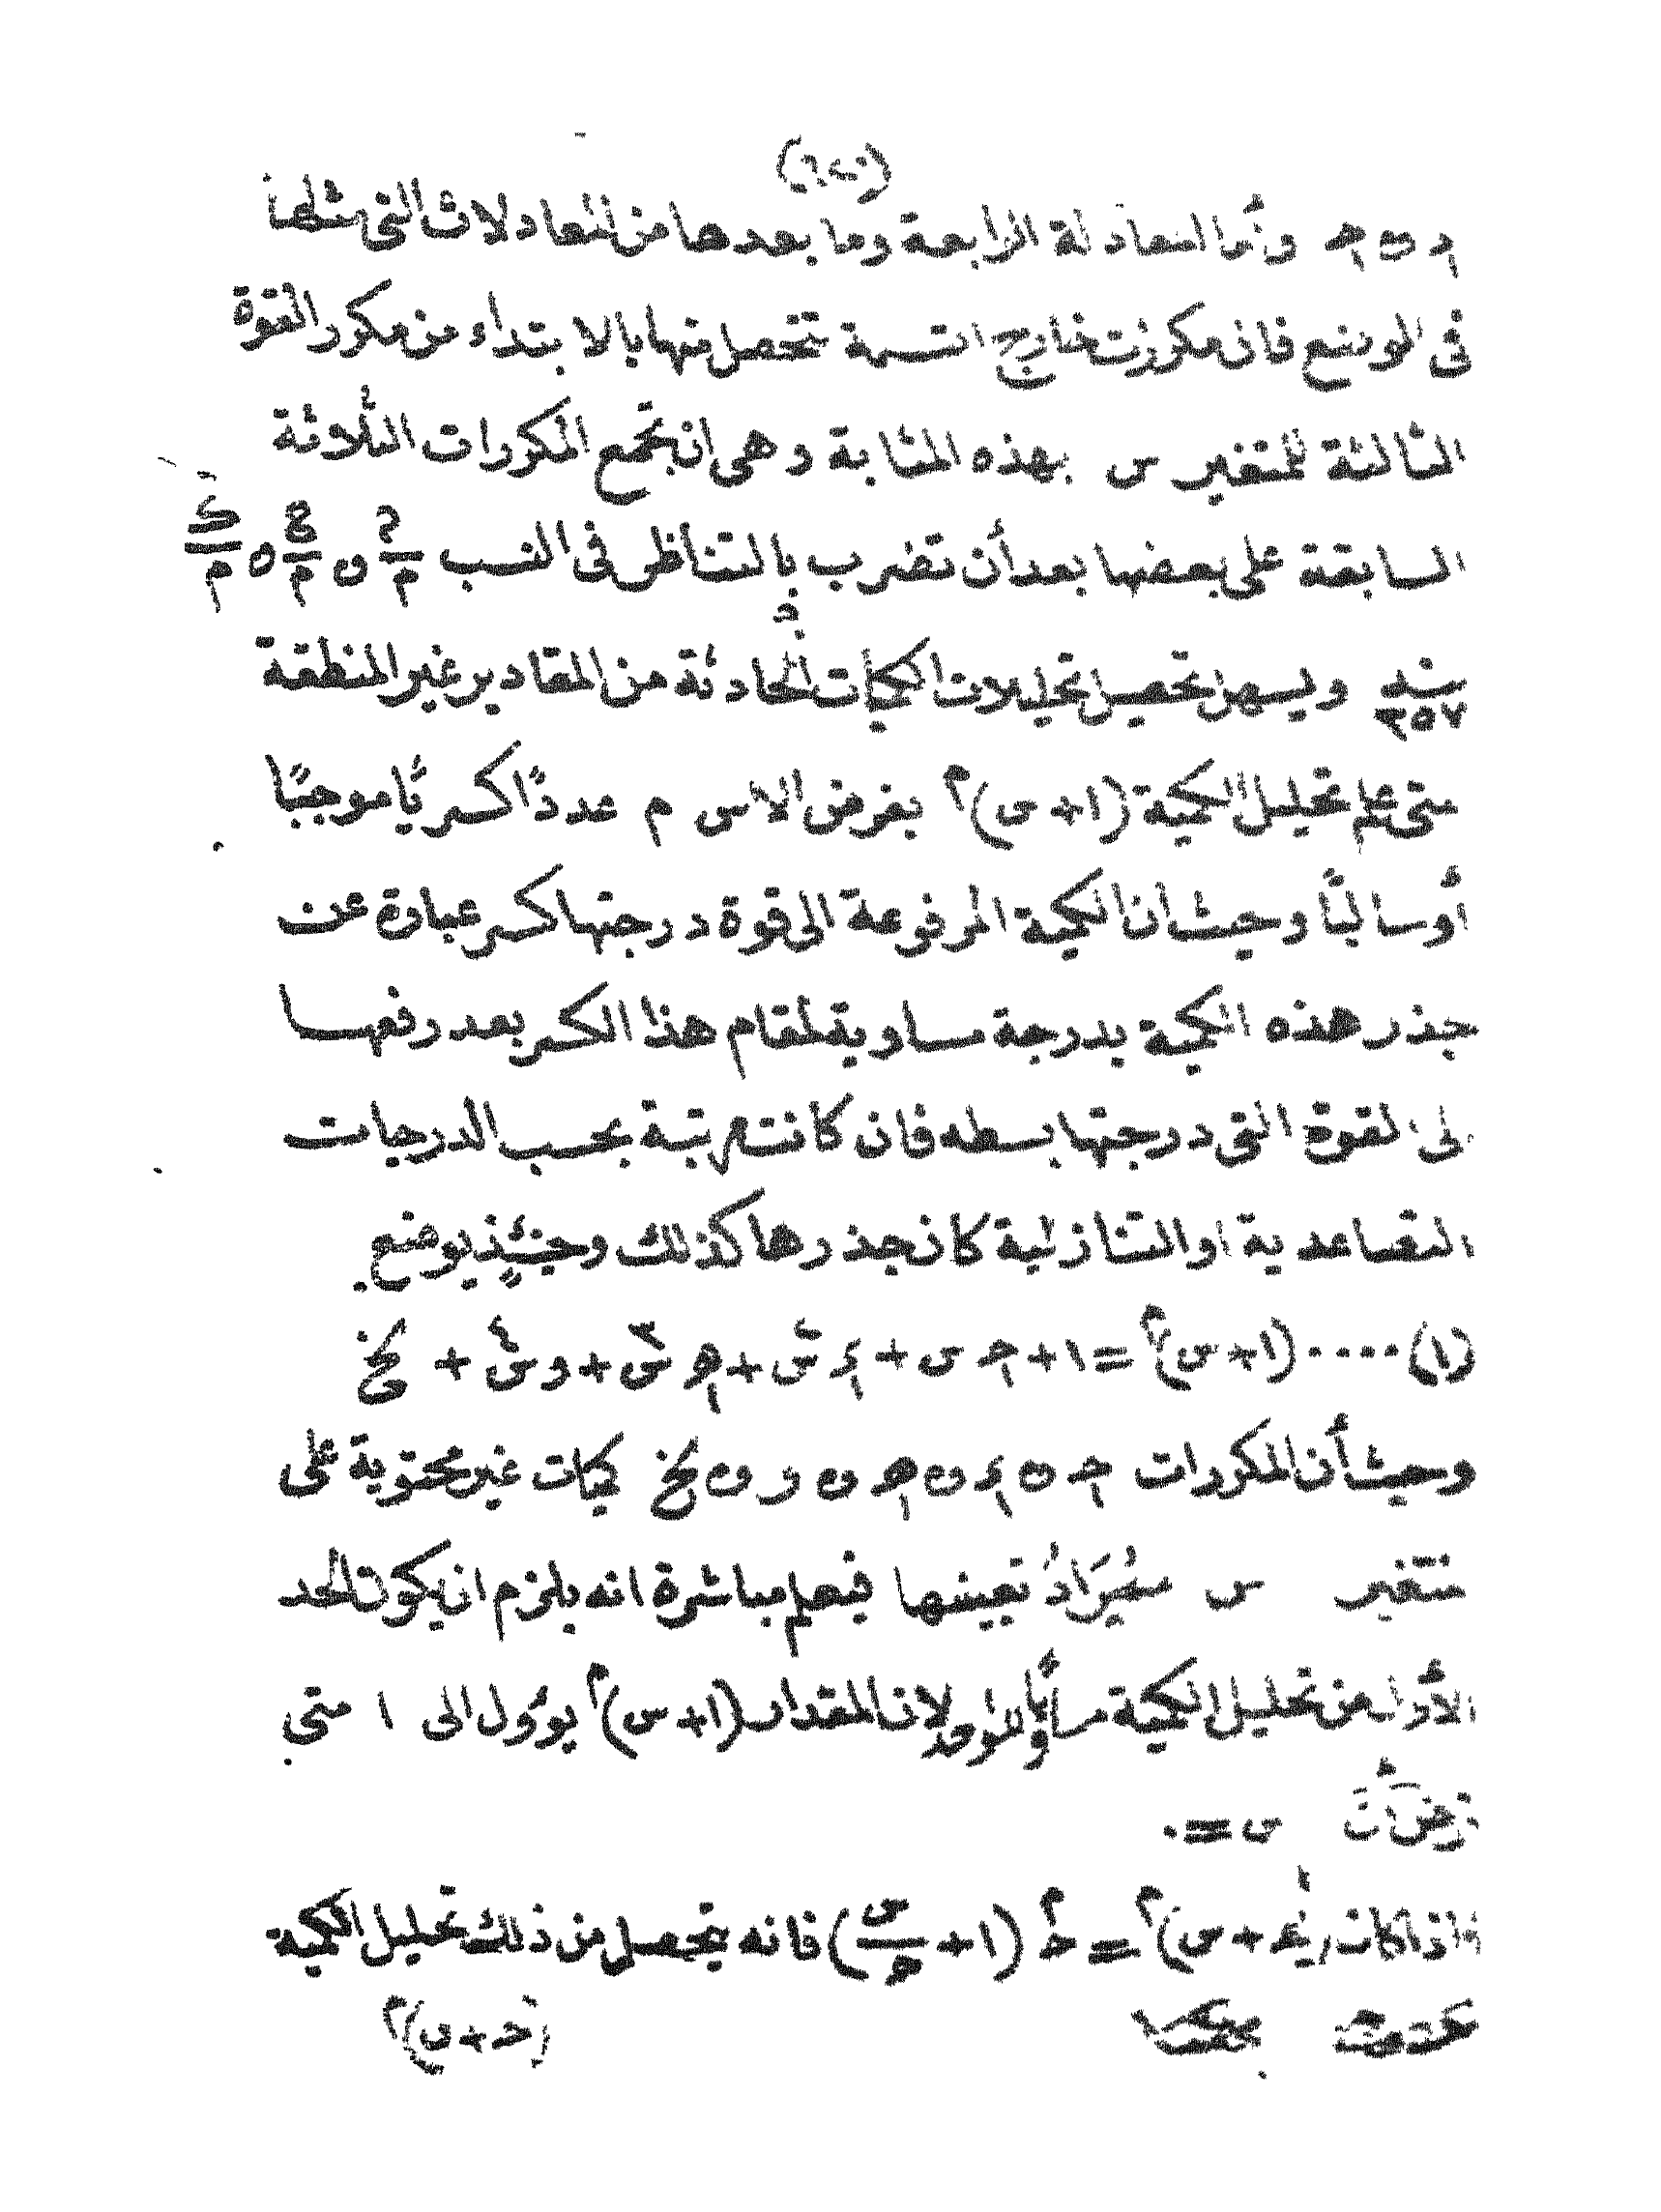 وأما المعادلة الرابعة وما بعدها من المعادلات التى مثلها
فى الوضع فان مكررات خارج القسمة تتحصل منها بالابتداء من مكرر القوة
الثالثة للمتغير س بهذه المثابة وهى ان تجمع المكررات الثلاثة
السابقة على بعضها بعد أن تضرب بالتناظر فى النسب
ويسهل تحصيل تحليلات الكميات الحادثة من المقادير غير المنطقة
متى علم تحليل الكمية (١+س)^م بفرض الاس م عددًا كسريًا موجبًا
أو سالبًا وحيث أن الكمية المرفوعة الى قوة درجتها كسر عبارة عن
جذر هذه الكمية بدرجة مساوية لمقام هذا الكسر بعد رفعها
الى القوة التى درجتها بسطه فان كانت مرتبة بحسب الدرجات
التصاعدية او التنازلية كان جذرها كذلك وحينئذٍ يوضع
(١)....(١+س)^م=١+حـ س+ءس^٢+هـس^٣+وس^٤+ لخ
وحيث أن المكررات حـ ں ء ں هـ ں و ں لخ كميات غير محتوية على
متغير س يُرَادُ تعيينها فيعلم مباشرة انه يلزم ان يكون الحد
الأول من تحليل الكمية مساويا للواحد لان المقدار (١+س)^م يؤول الى ١ متى
فرض أن س=٠
فاذا كانت (حـ+س)^م=حـ^م(١+س/حـ)^م فانه يتحصل من ذلك تحليل الكمية
(حـ+س)^م